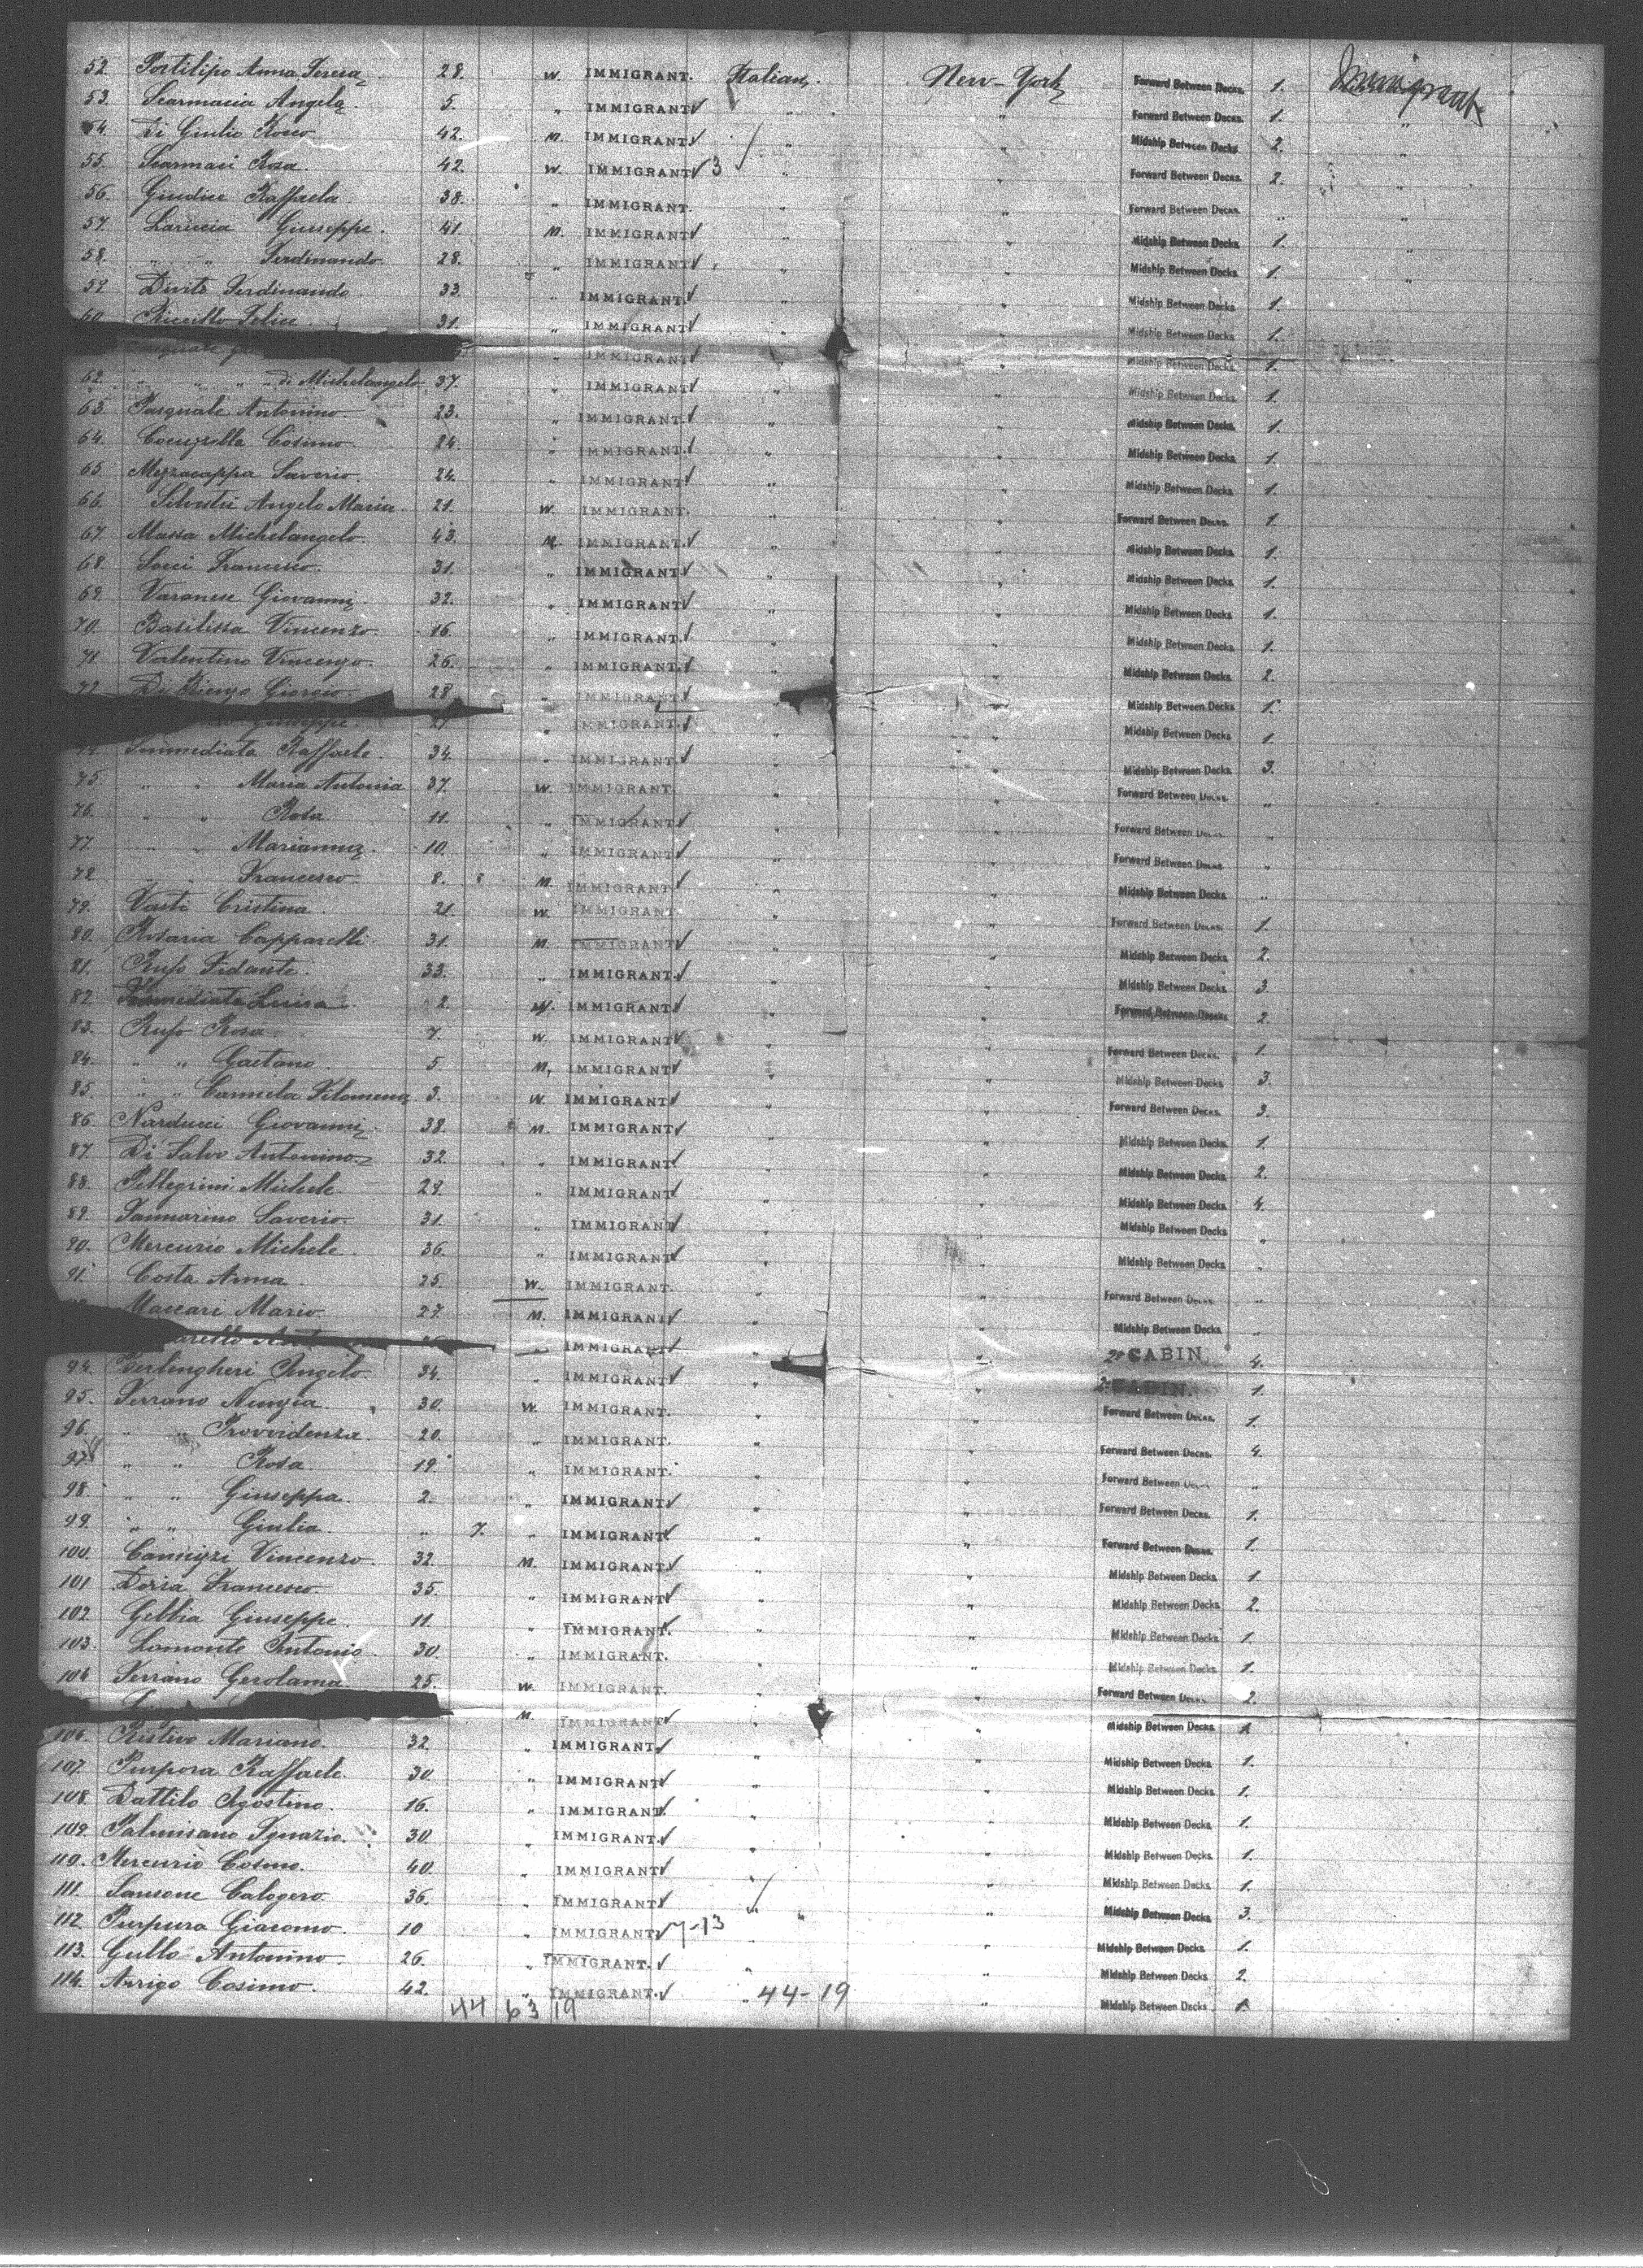 52. Portilipo Anna Teresa 28. W. IMMIGRANT. Italian. New-York Forward Between Decks. 1. Immigrant
53. Scarmacia Angela 5. " IMMIGRANT " " Forward Between Decks. 1. "
54. Di Giulio Rocco 42. M. IMMIGRANT " " Midship Between Decks 2. "
55. Scarmaci Rosa. 42. W. IMMIGRANT 3 " " Forward Between Decks. 2. "
56. Giudice Raffaela 38. " IMMIGRANT. " " Forward Between Decks. " "
57. Lariccia Giuseppe. 41. M. IMMIGRANT " " Midship Between Decks 1. "
58. " " Ferdinando. 28. " IMMIGRANT " " Midship Between Decks 1. "
59. Ferdinando 33. " IMMIGRANT " " Midship Between Decks 1.
60. Felice. 31. " IMMIGRANT " " Midship Between Decks 1.
" IMMIGRANT Midship Between Decks 1.
62. " " " di Michelangelo 37. " IMMIGRANT " " Midship Between Decks 1.
63. Pasquale Antonino 23. " IMMIGRANT " " Midship Between Decks. 1.
64. Cocuzzella Cosimo. 24. " IMMIGRANT " " Midship Between Decks. 1.
65. Mezzacappa Saverio. 24. " IMMIGRANT " " Midship Between Decks 1.
66. Silvestri Angela Maria. 21. W. IMMIGRANT. " " Forward Between Decks. 1.
67. Massa Michelangelo. 43. M. IMMIGRANT. " " Midship Between Decks. 1.
68. Socci Francesco. 31. " IMMIGRANT. " " Midship Between Decks. 1.
69. Varanese Giovanni 32. " IMMIGRANT. " " Midship Between Decks 1.
70. Basilissa Vincenzo. 16. " IMMIGRANT. " " Midship Between Decks 1.
71. Valentino Vincenzo. 26. " IMMIGRANT. " " Midship Between Decks 2.
72. Di Rienzo Giorgio. 28 " IMMIGRANT " Midship Between Decks 1.
Giuseppe. 27 " IMMIGRANT. " " Midship Between Decks 1.
74. Immediata Raffaele. 34. " IMMIGRANT " " Midship Between Decks. 3.
75. " " Maria Antonia 37. W. IMMIGRANT. " " Forward Between Decks. "
76. " " Rosa. 11. " IMMIGRANT " " Forward Between Decks "
77. " " Marianna. 10. " IMMIGRANT " " Forward Between Decks "
78. " " Francesco. 8. M. IMMIGRANT " " Midship Between Decks "
79. Vasti Cristina. 21. W. IMMIGRANT. " " Forward Between Decks. 1.
80. Rosaria Capparelli. 31. M. IMMIGRANT " " Midship Between Decks 2.
81. Rufo Fidante. 33. " IMMIGRANT. " " Midship Between Decks 3.
82. Immediata Luisa 2. W. IMMIGRANT " " Forward Between Decks 2.
83. Rufo Rosa 7. W. IMMIGRANT " " Forward Between Decks. 1.
84. " " Gaetano. 5. M. IMMIGRANT " " Midship Between Decks 3.
85. " " Carmela Filomena 3. W. IMMIGRANT " " Forward Between Decks. 3.
86. Narducci Giovanni. 38. M. IMMIGRANT " " Midship Between Decks 1.
87. Di Salvo Antonino 32. " IMMIGRANT " " Midship Between Decks 2.
88. Pellegrini Michele. 29. " IMMIGRANT " " Midship Between Decks 4.
89. Iannarino Saverio. 31. " IMMIGRANT " " Midship Between Decks "
90. Mercurio Michele. 36. " IMMIGRANT " " Midship Between Decks "
91. Costa Anna 25. W. IMMIGRANT. " " Forward Between Decks. "
Maccari Mario 27. M. IMMIGRANT " " Midship Between Decks "
IMMIGRANT " " 2d CABIN. 4.
94. Berlingheri Angelo. 34. " IMMIGRANT " " 2d CABIN. 1.
95. Serrano Nunzia. 30. W. IMMIGRANT. " " Forward Between Decks. 1.
96. " " Provvidenza. 20. " IMMIGRANT. " " Forward Between Decks. 4.
97. " " Rosa. 19. " IMMIGRANT. " " Forward Between Decks "
98. " " Giuseppa. 2. " IMMIGRANT " " Forward Between Decks. 1.
99. " " Giulia. " 7. " IMMIGRANT " " Forward Between Decks. 1.
100. Cannizzi Vincenzo. 32. M. IMMIGRANT " " Midship Between Decks 1.
101. Doria Francesco. 35. " IMMIGRANT " " Midship Between Decks 2.
102. Gebbia Giuseppe. 11. " IMMIGRANT. " " Midship Between Decks 1.
103. Lomonte Antonio. 30. " IMMIGRANT. " " Midship Between Decks. 1.
104. Serrano Gerolama 25. W. IMMIGRANT. " " Forward Between Decks 2.
M. IMMIGRANT " " Midship Between Decks 1.
106. Ristivo Mariano. 32. " IMMIGRANT " " Midship Between Decks 1.
107. Purpora Raffaele. 30. " IMMIGRANT " Midship Between Decks 1.
108. Dattilo Agostino. 16. " IMMIGRANT. " " Midship Between Decks 1.
109. Palmisano Ignazio. 30. " IMMIGRANT. " " Midship Between Decks 1.
110. Mercurio Cosmo. 40. " IMMIGRANT " " Midship Between Decks 1.
111. Sansone Calogero. 36. " IMMIGRANT " " Midship Between Decks 3.
112. Purpura Giacomo. 10 " IMMIGRANT 7-13 " " Midship Between Decks 1.
113. Gullo Antonino. 26. " IMMIGRANT. " " Midship Between Decks 2.
114. Arrigo Cosimo. 42. " IMMIGRANT. " 44-19 " Midship Between Decks 1
44 63 19